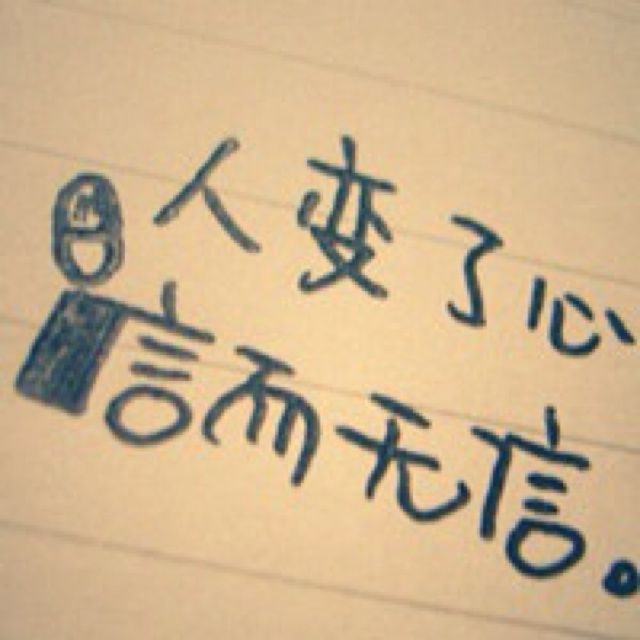 人变了心
言而无信。